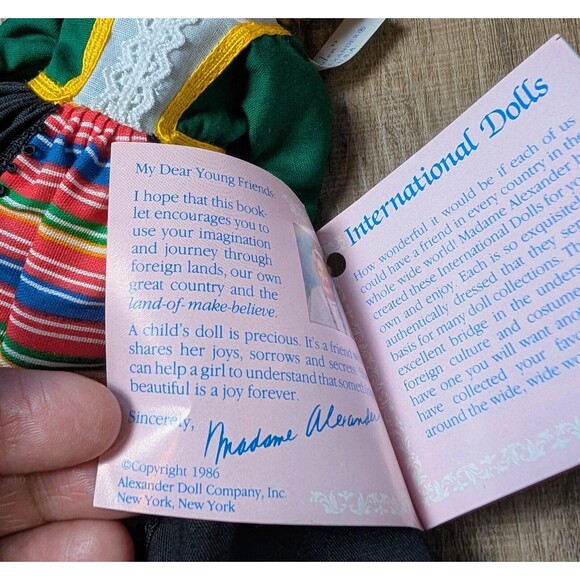 My Dear Young Friends:
I hope that this book-
let encourages you to
use your imagination
and journey through
foreign lands, our own
great country and the
land-of-make-believe.
A child's doll is precious. It's a friend
shares her joys, sorrows and secrets.
can help a girl to understand that
beautiful is a joy forever.
Sincerely,
Madame Alexander
©Copyright 1986
Alexander Doll Company, Inc.
New York, New York
International Dolls
How wonderful it would be if each of us
could have a friend in every country in the
whole wide world! Madame Alexander
created these International Dolls for
own and enjoy. Each is so exquisitely
authentically dressed that they
basis for many doll collections.
excellent bridge in the
foreign culture and
have one you will want
have collected your
around the wide, wide